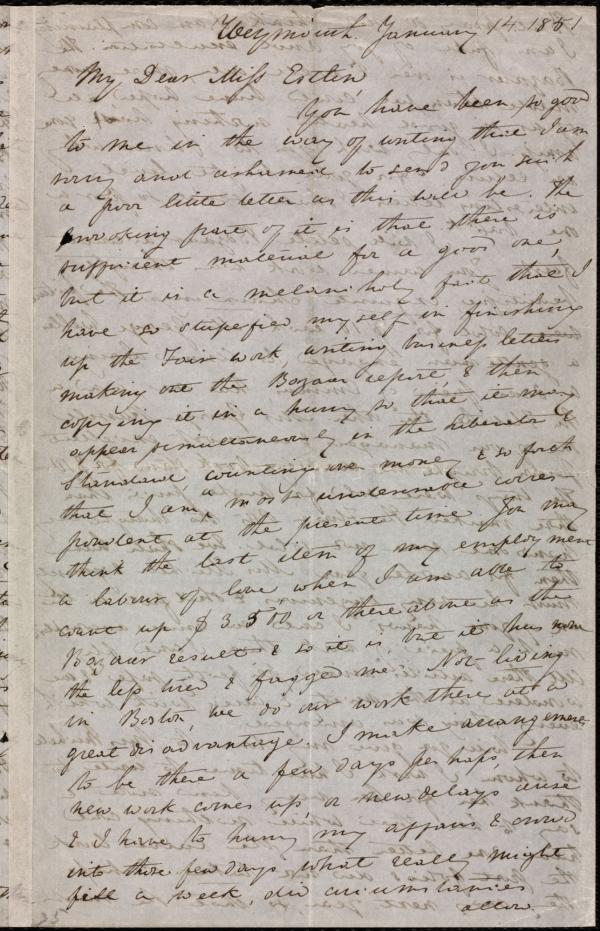 Weymouth. January 14. 1851
My Dear Miss Estlin
You have been so good
to me in the way of writing that I am
sorry and ashamed to send you such
a poor little letter as this will be. The
provoking part of it is that there is
sufficient material for a good one,
but it is a melancholy fact that I
have so stupefied myself in finishing
up the Fair work, writing business letters
making out the Bazaar report, & then
copying it in a hurry so that it may
appear simultaneously in the Liberator &
Standard counting over money & so forth
that I am a most undesirable corres-
pondent at the present time. You may
think the last item of my employment
a labour of love when I am able to
count up $3.500 or thereabouts as the
Bazaar result & so it is, but it has none
the less tired & fagged me. Not living
in Boston, we do our work there at a
great disadvantage. I make arrangements
to be there a few days perhaps, then
new work comes up, or new delays arise
& I have to hurry my affairs & crowd
into those few days what really might
fill a week, did circumstances
allow.